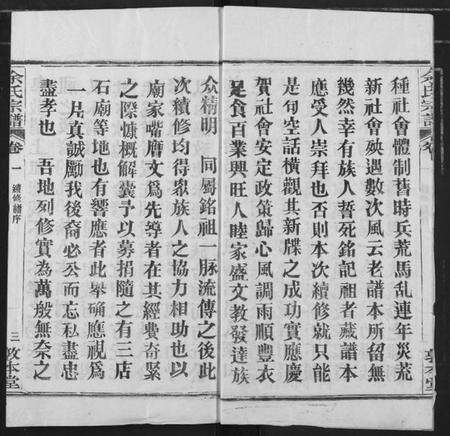 種社會體制舊時兵荒馬乱連年災荒
新社會殃遇數次風云老譜本所留無
幾然幸有族人誓死銘記祖者藏譜本
應受人崇拜也否則本次續修就只能
是句空話橫觀其新牒之成功實應慶
賀社會安定政策歸心風調雨順豐衣
足食百業興旺人睦家盛文教發達族
众精明　同屬銘祖一脉流傳之後此
次續修均得衆族人之協力相助也以
廟家嘴唐文爲先導者在其經費奇緊
之際慷概解囊予以募捐隨之有三店
石廟等地也有響應者此舉确應視爲
一片真誠勵我後裔必公而忘私盡忠
盡孝也　吾地列修實為萬般無奈之
余氏宗譜
卷一
續修譜序
三
敦本堂
余氏宗譜
卷
敦本堂